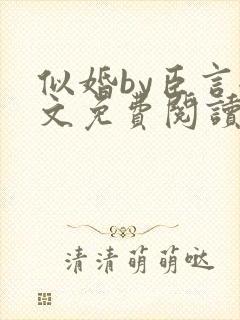 似婚by臣言
文免費閱讀
清清萌萌噠